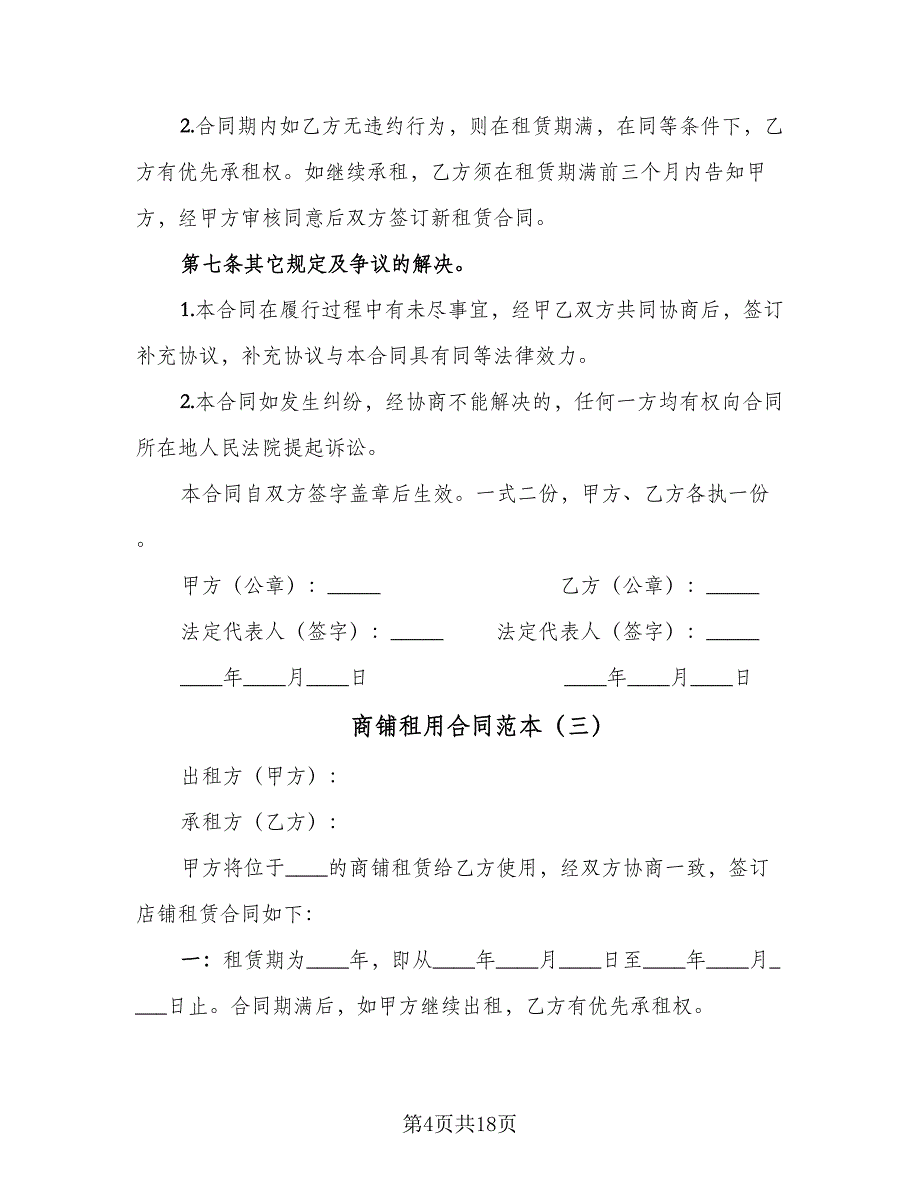 2.合同期内如乙方无违约行为，则在租赁期满，在同等条件下，乙
方有优先承租权。如继续承租，乙方须在租赁期满前三个月内告知甲
方，经甲方审核同意后双方签订新租赁合同。
第七条其它规定及争议的解决。
1.本合同在履行过程中有未尽事宜，经甲乙双方共同协商后，签订
补充协议，补充协议与本合同具有同等法律效力。
2.本合同如发生纠纷，经协商不能解决的，任何一方均有权向合同
所在地人民法院提起诉讼。
本合同自双方签字盖章后生效。一式二份，甲方、乙方各执一份
。
甲方（公章）：_____ 乙方（公章）：_____
法定代表人（签字）：_____ 法定代表人（签字）：_____
____年____月____日 ____年____月____日
商铺租用合同范本（三）
出租方（甲方）：
承租方（乙方）：
甲方将位于____的商铺租赁给乙方使用，经双方协商一致，签订
店铺租赁合同如下：
一：租赁期为____年，即从____年____月____日至____年____月_
___日止。合同期满后，如甲方继续出租，乙方有优先承租权。
第4页共18页